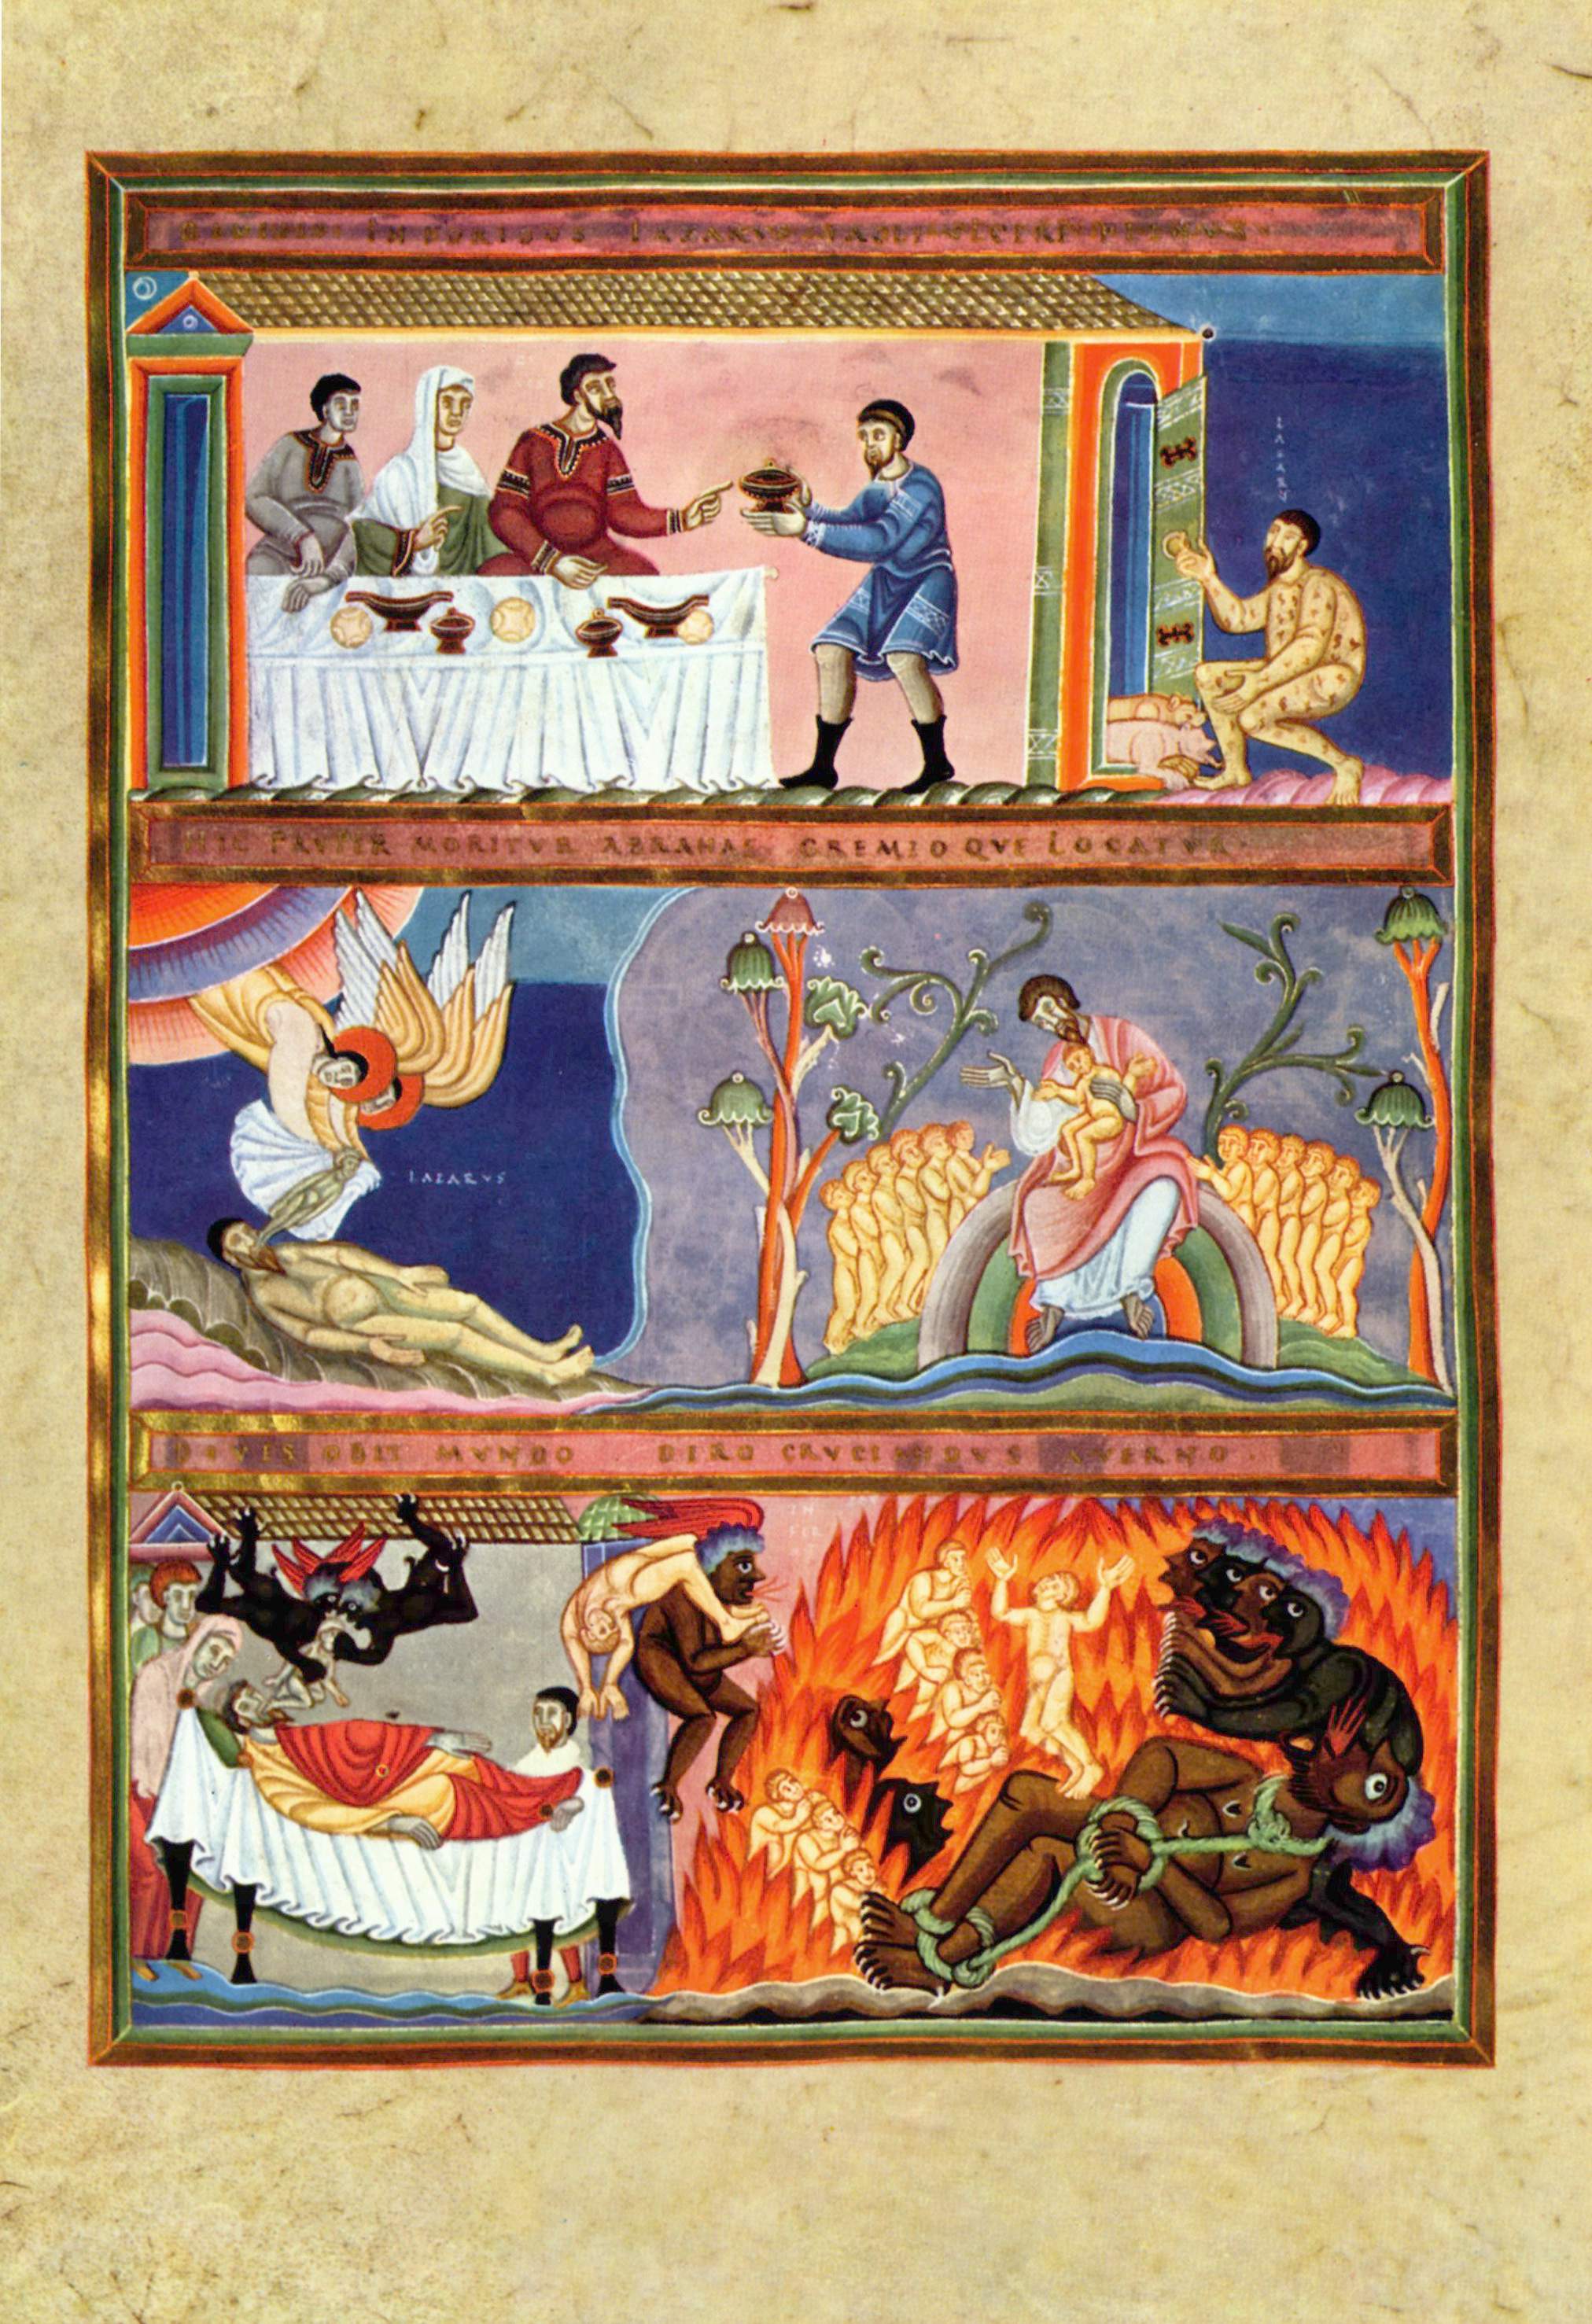 IN FORIBUS LAZARUS
LAZARU
HIC PAUPER MORITVR ABRAHAE GREMIO QVE LOCATVR
LAZARVS
DIVES OBIT MVNDO DIRO CRVCIANDVS AVERNO
INFER